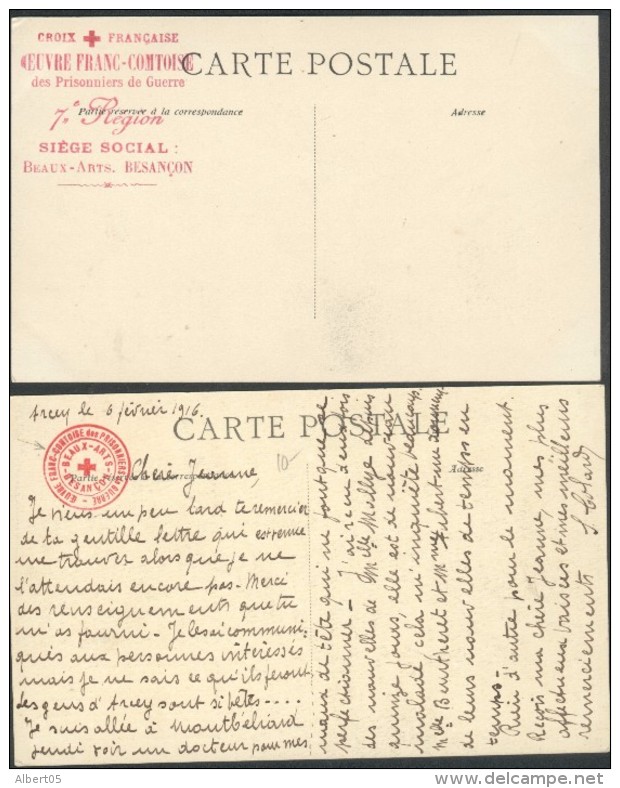 CROIX ✚ FRANÇAISE
ŒUVRE FRANC-COMTOISE
des Prisonniers de Guerre
7e Région
SIÈGE SOCIAL :
BEAUX-ARTS. BESANÇON
CARTE POSTALE
Partie réservée à la correspondance
Adresse
Arcey le 6 février 1916.
CARTE POSTALE
ŒUVRE FRANC-COMTOISE des PRISONNIERS de GUERRE
BEAUX-ARTS
BESANÇON
Adresse
10-
Chère Jeanne,
Je viens un peu tard te remercier
de ta gentille lettre qui est venue
me trouver alors que je ne
l'attendais encore pas - Merci
des renseignements que tu
m'as fourni - Je les ai communi-
qués aux personnes intéressés
mais je ne sais ce qu'ils feront
les gens d'Arcey sont si bêtes ....
Je suis allée à Montbéliard
jeudi voir un docteur pour mes
maux de tête qui ne font que se
perfectionner - J'ai eu
des nouvelles de Melle depuis
quinze jours, elle est de nouveau
malade, cela m'inquiète beaucoup.
Melle et Mme
de leurs nouvelles de temps en
temps -
Rien d'autre pour le moment.
Reçois ma chère Jeanne, mes plus
affectueux baisers et mes meilleurs
remerciements
Albert05
delcampe.net